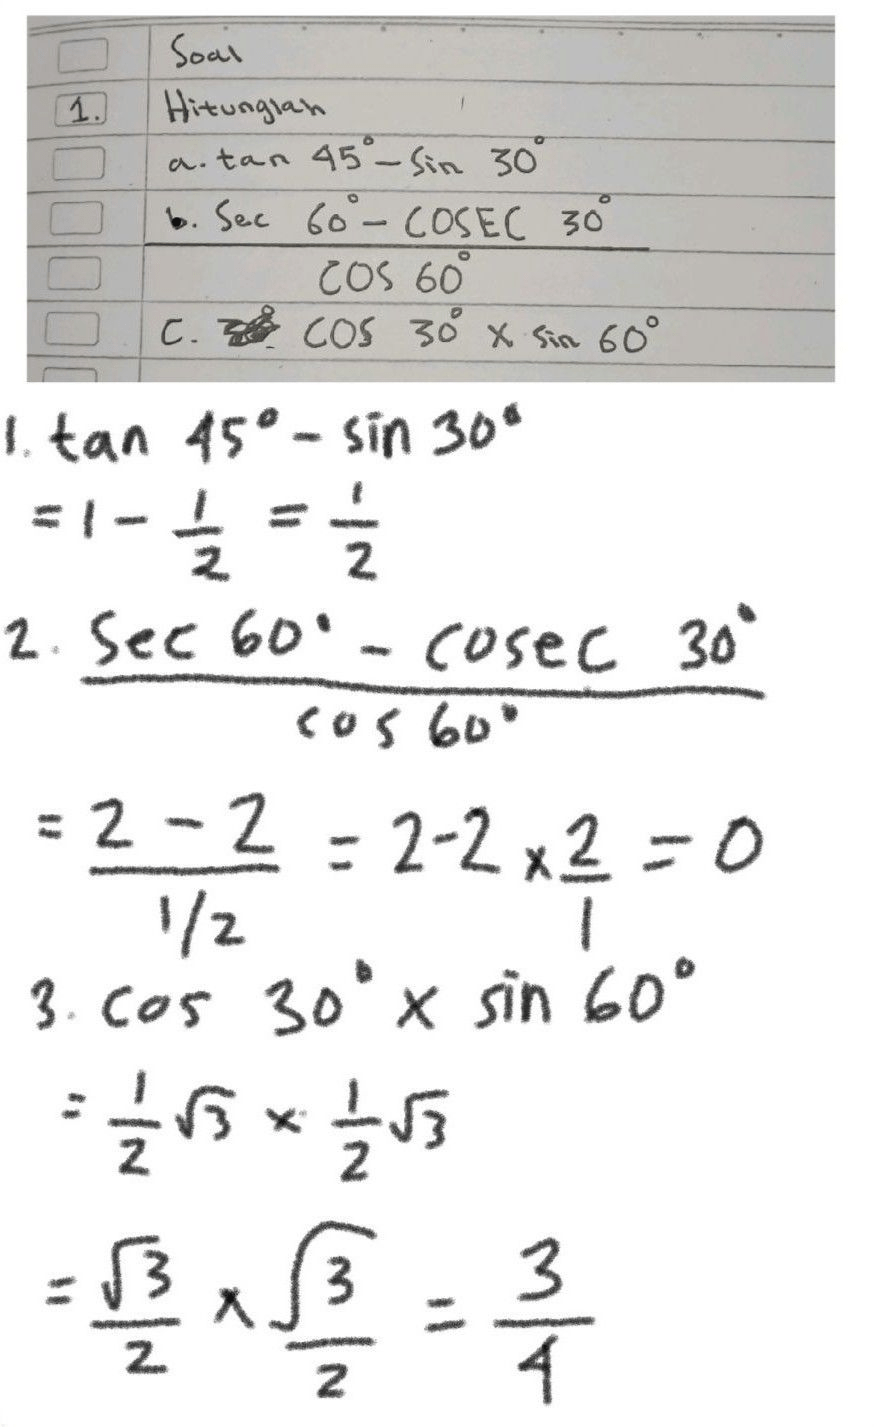 Soal
1. Hitunglah
a. tan 45° - Sin 30°
b. Sec 60° - COSEC 30°
COS 60°
C. COS 30° x sin 60°
1. tan 45° - sin 30°
= 1 - 1/2 = 1/2
2. Sec 60° - cosec 30°
cos 60°
= 2 - 2 / 1/2 = 2-2 x 2/1 = 0
3. cos 30° x sin 60°
= 1/2 √3 x 1/2 √3
= √3/2 x √3/2 = 3/4